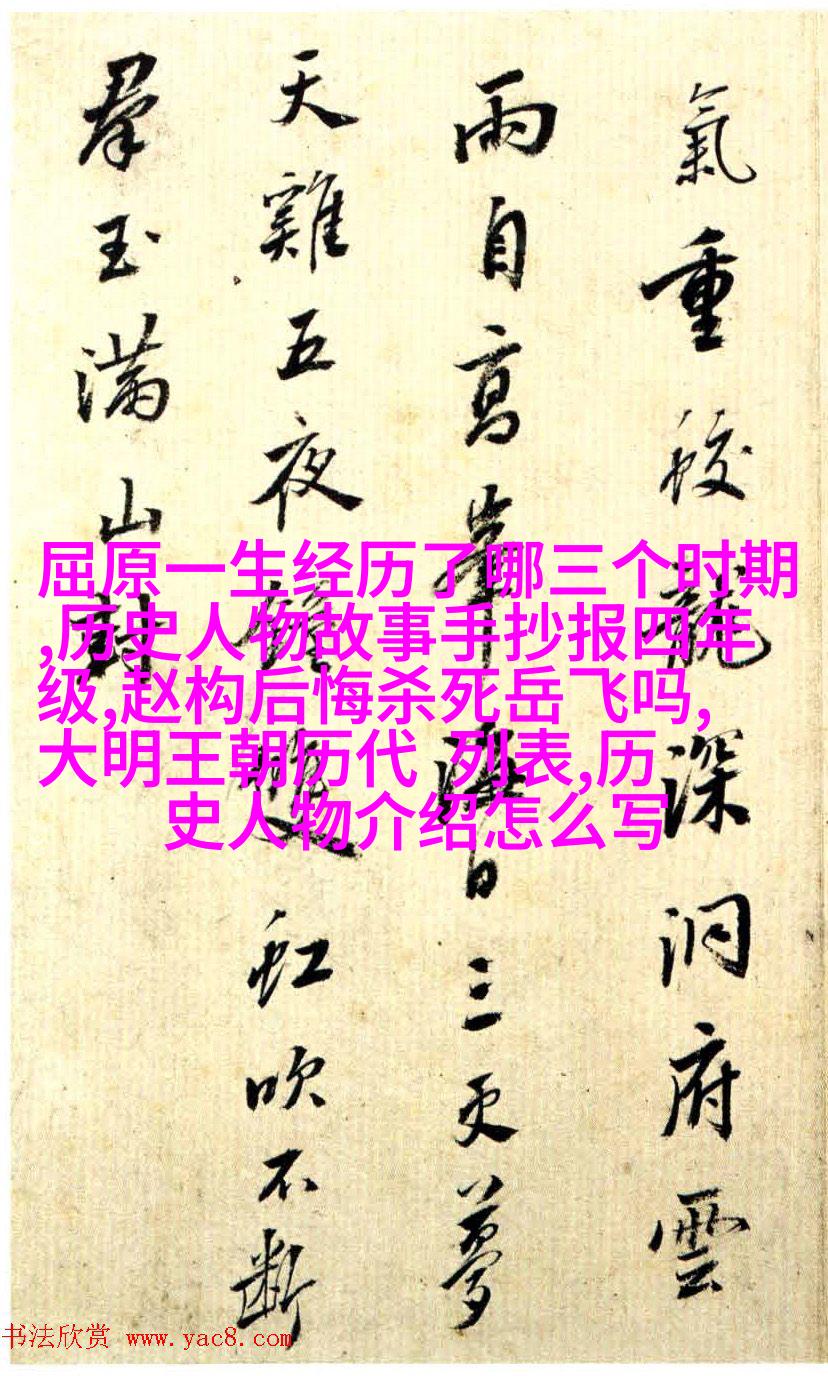 氣重蛟龍深洞府雲
雨自高峯海日三更夢
天雞五夜鐘雙虹吹不斷
羣玉满山封
屈原一生经历了哪三个时期
,历史人物故事手抄报四年
级,赵构后悔杀死岳飞吗,
大明王朝历代 列表,历
史人物介绍怎么写
书法欣赏 www.yac8.com